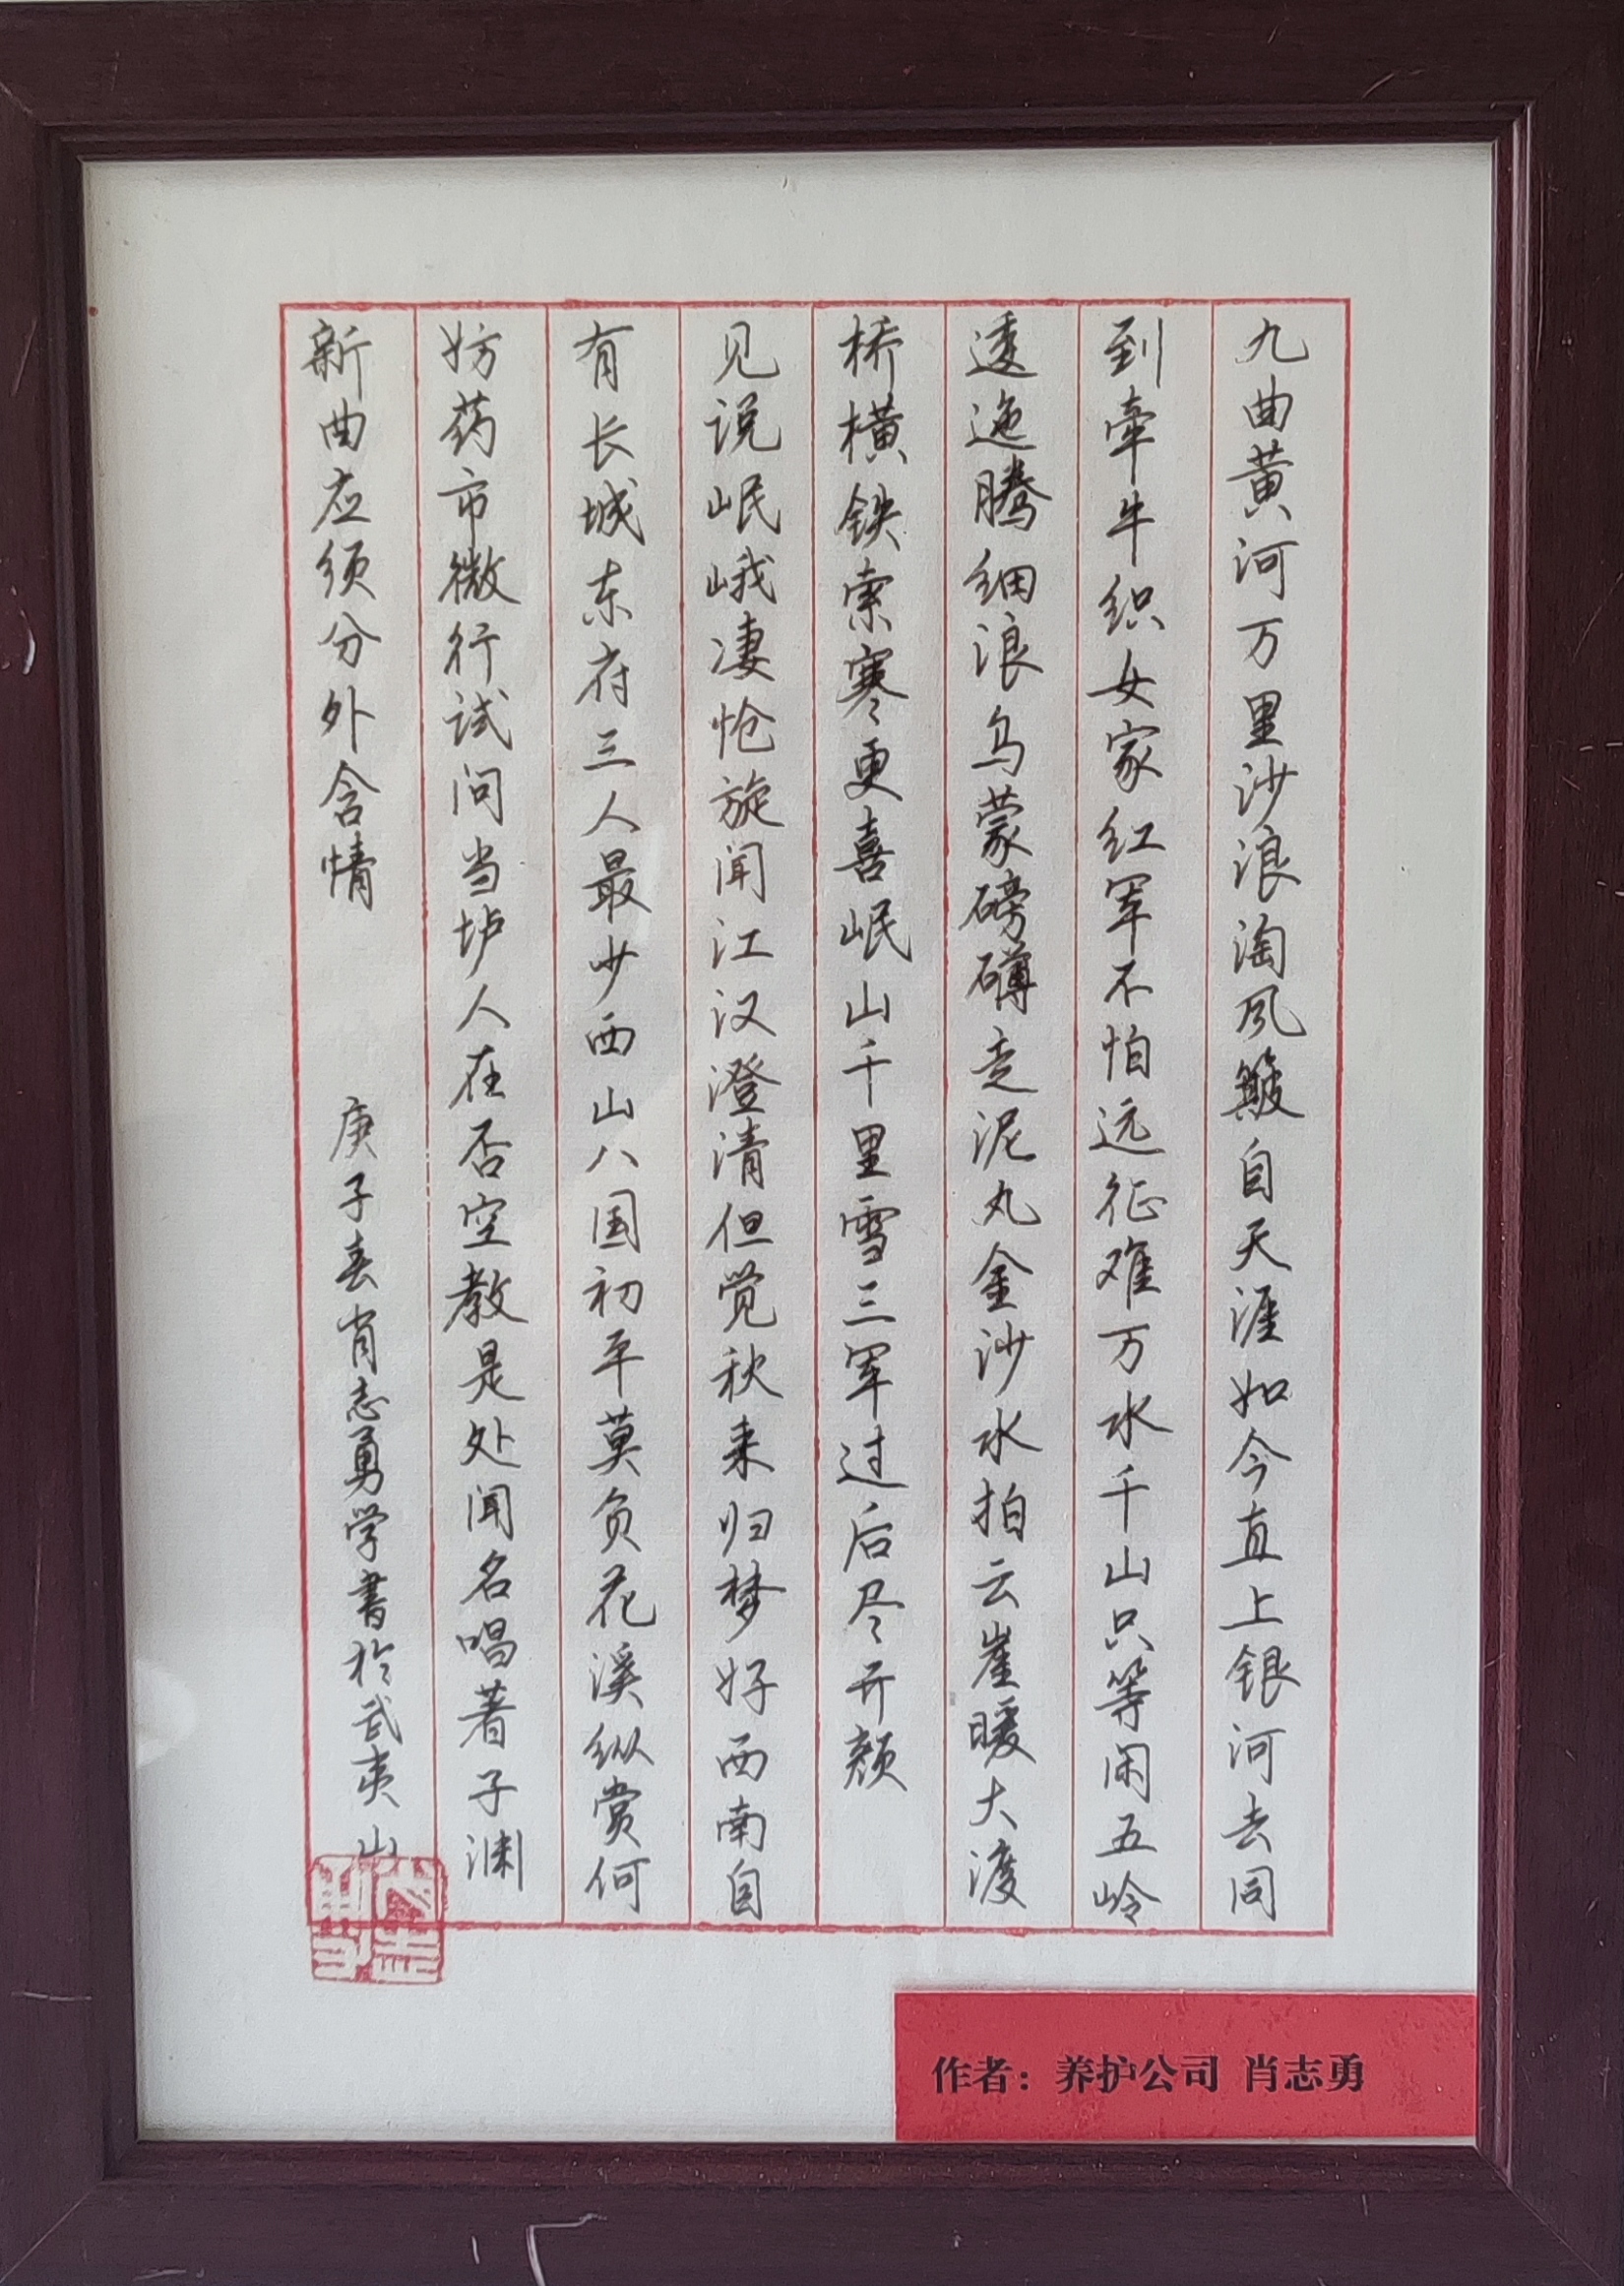 九曲黄河万里沙浪淘风簸自天涯如今直上银河去同
到牵牛织女家红军不怕远征难万水千山只等闲五岭
逶迤腾细浪乌蒙磅礴走泥丸金沙水拍云崖暖大渡
桥横铁索寒更喜岷山千里雪三军过后尽开颜
见说岷峨凄怆旋闻江汉澄清但觉秋来归梦好西南自
有长城东府三人最少西山八国初平莫负花溪纵赏何
妨药市微行试问当垆人在否空教是处闻名唱著子渊
新曲应须分外含情
庚子春肖志勇学書於武夷山
作者：养护公司 肖志勇